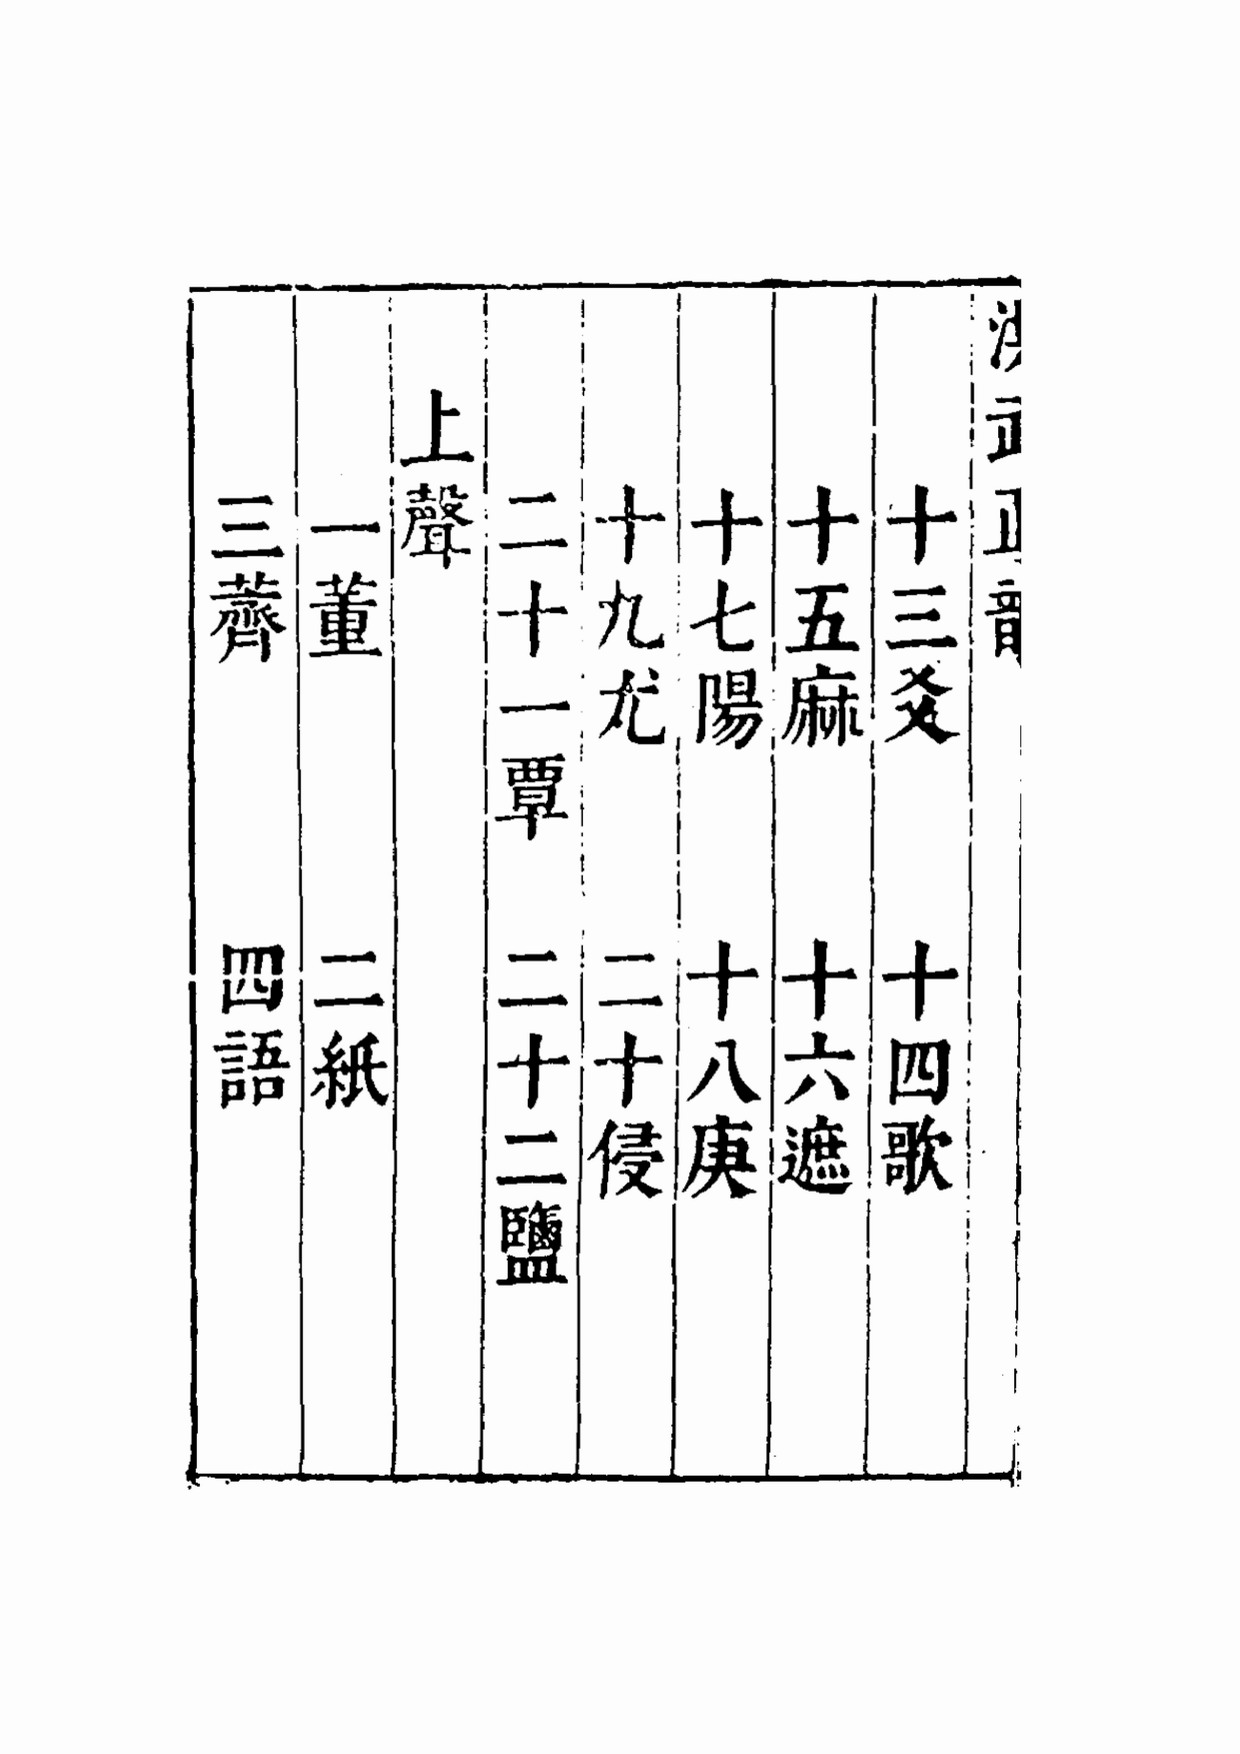 洪武正韻
十三爻 十四歌
十五麻 十六遮
十七陽 十八庚
十九尤 二十侵
二十一覃 二十二鹽
上聲
一董 二紙
三薺 四語